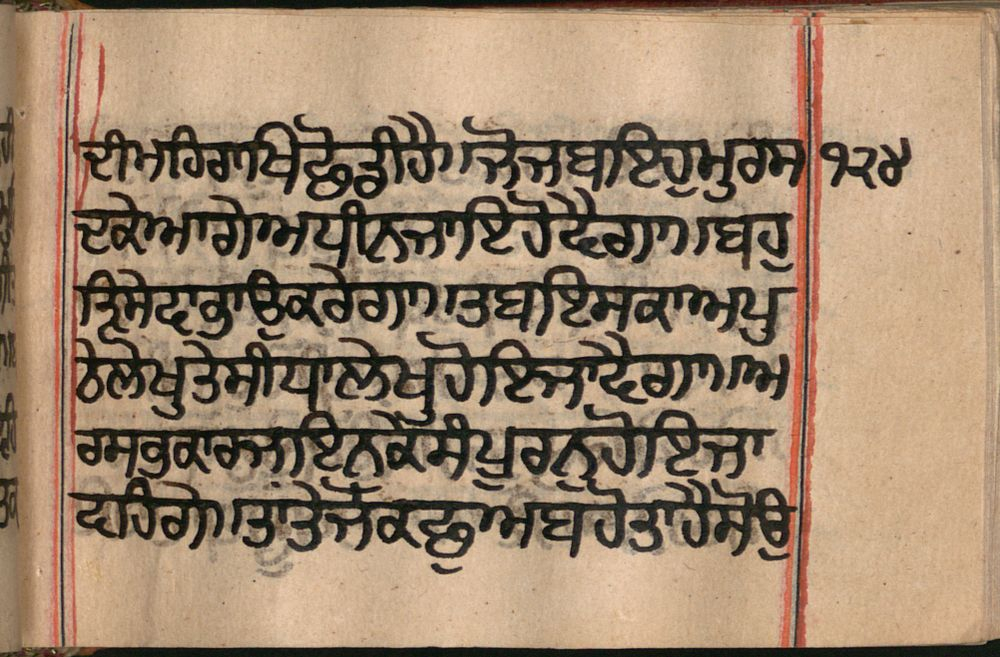 ਦੀਅਹਿਰਾਖਿਛੋਡੀਹੈ॥ਜੋਜਬਾਇਹੁਮੁਰਸ ੧੨੪
ਦਕੇਆਗੇਅਧੀਨਜਾਇਹੋਵੈਗਾ॥ਬਹੁ
ਤੁਸੇਵਾਭਾਉਕਰੇਗਾ॥ਤਬਇਸਕਾਅਪੁ
ਠੇਲੇਖੁਤੇਸੀਧਾਲੇਖੁਹੋਇਜਾਵੈਗਾ॥ਅ
ਰਸਭੁਕਾਰਜਇਨਕੇਸੰਪੁਰਨੁਹੋਇਜਾ
ਵਹਿਗੇ॥ਤਾਤੇਜੋਕਛੁਅਬਹੋਤਾਹੈਸੋਉ